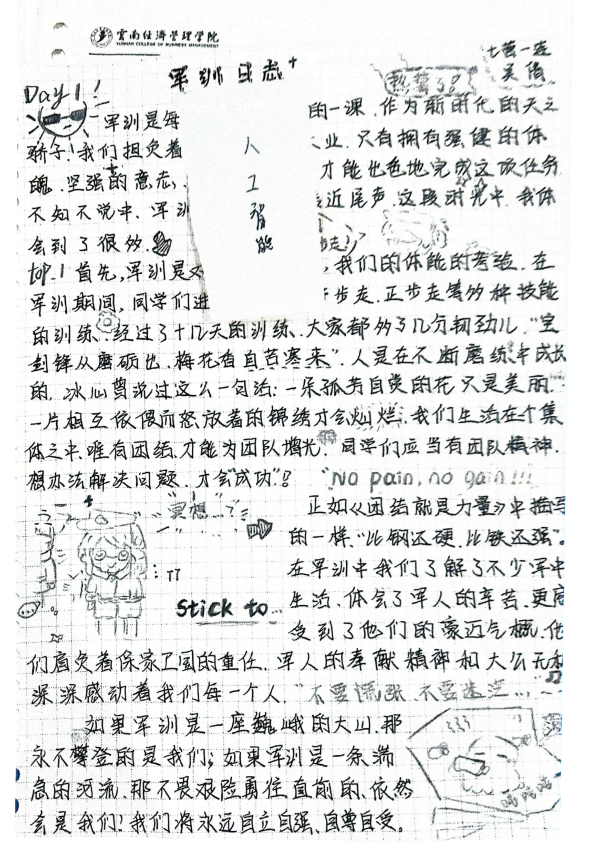 雲南经濟管理学院
YUNNAN COLLEGE OF BUSINESS MANAGEMENT
军训日志+
七营一连
Day 1!
军训是每
的一课.作为新时代的天之
骄子!我们担负着
业.只有拥有强健的体
魄.坚强的意志、
才能出色地完成这项任务
不知不说中.军训
接近尾声.这段时光中.我体
会到了很多.
人
工
智
能
top.1 首先,军训是对
,我们的体能的考验.在
军训期间,同学们进
步走.正步走等多种技能
的训练.经过了十几天的训练.大家都多了几分韧劲儿."宝
剑锋从磨砺出.梅花香自苦寒来".人是在不断磨练中成长
的.冰心曾说过这么一句话:一朵孤芳自赏的花只是美丽.
一片相互依偎而怒放着的锦绣才会灿烂.我们生活在个集
体之中.唯有团结.才能为团队增光.同学们应当有团队精神.
想办法解决问题.才会"成功"!
"No pain, no gain!!!
"冥想...?"
正如《团结就是力量》中描写
的一样."比钢还硬.比铁还强"。
在军训中我们了解了不少军中
生活.体会了军人的辛苦.更感
Stick to...
受到了他们的豪迈气概.他
们肩负着保家卫国的重任.军人的奉献精神和大公无私
深深感动着我们每一个人.
"不要慌张.不要迷茫...."
如果军训是一座巍峨的大山.那
永不攀登的是我们;如果军训是一条湍
急的河流.那不畏艰险勇往直前的、依然
会是我们!我们将永远自立自强、自尊自爱。